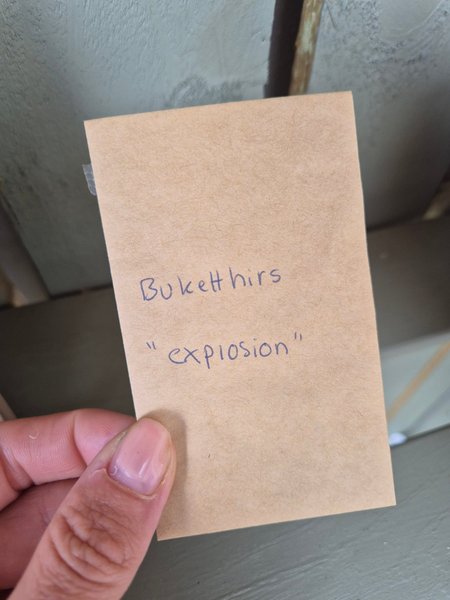 Buketthirs
"explosion"